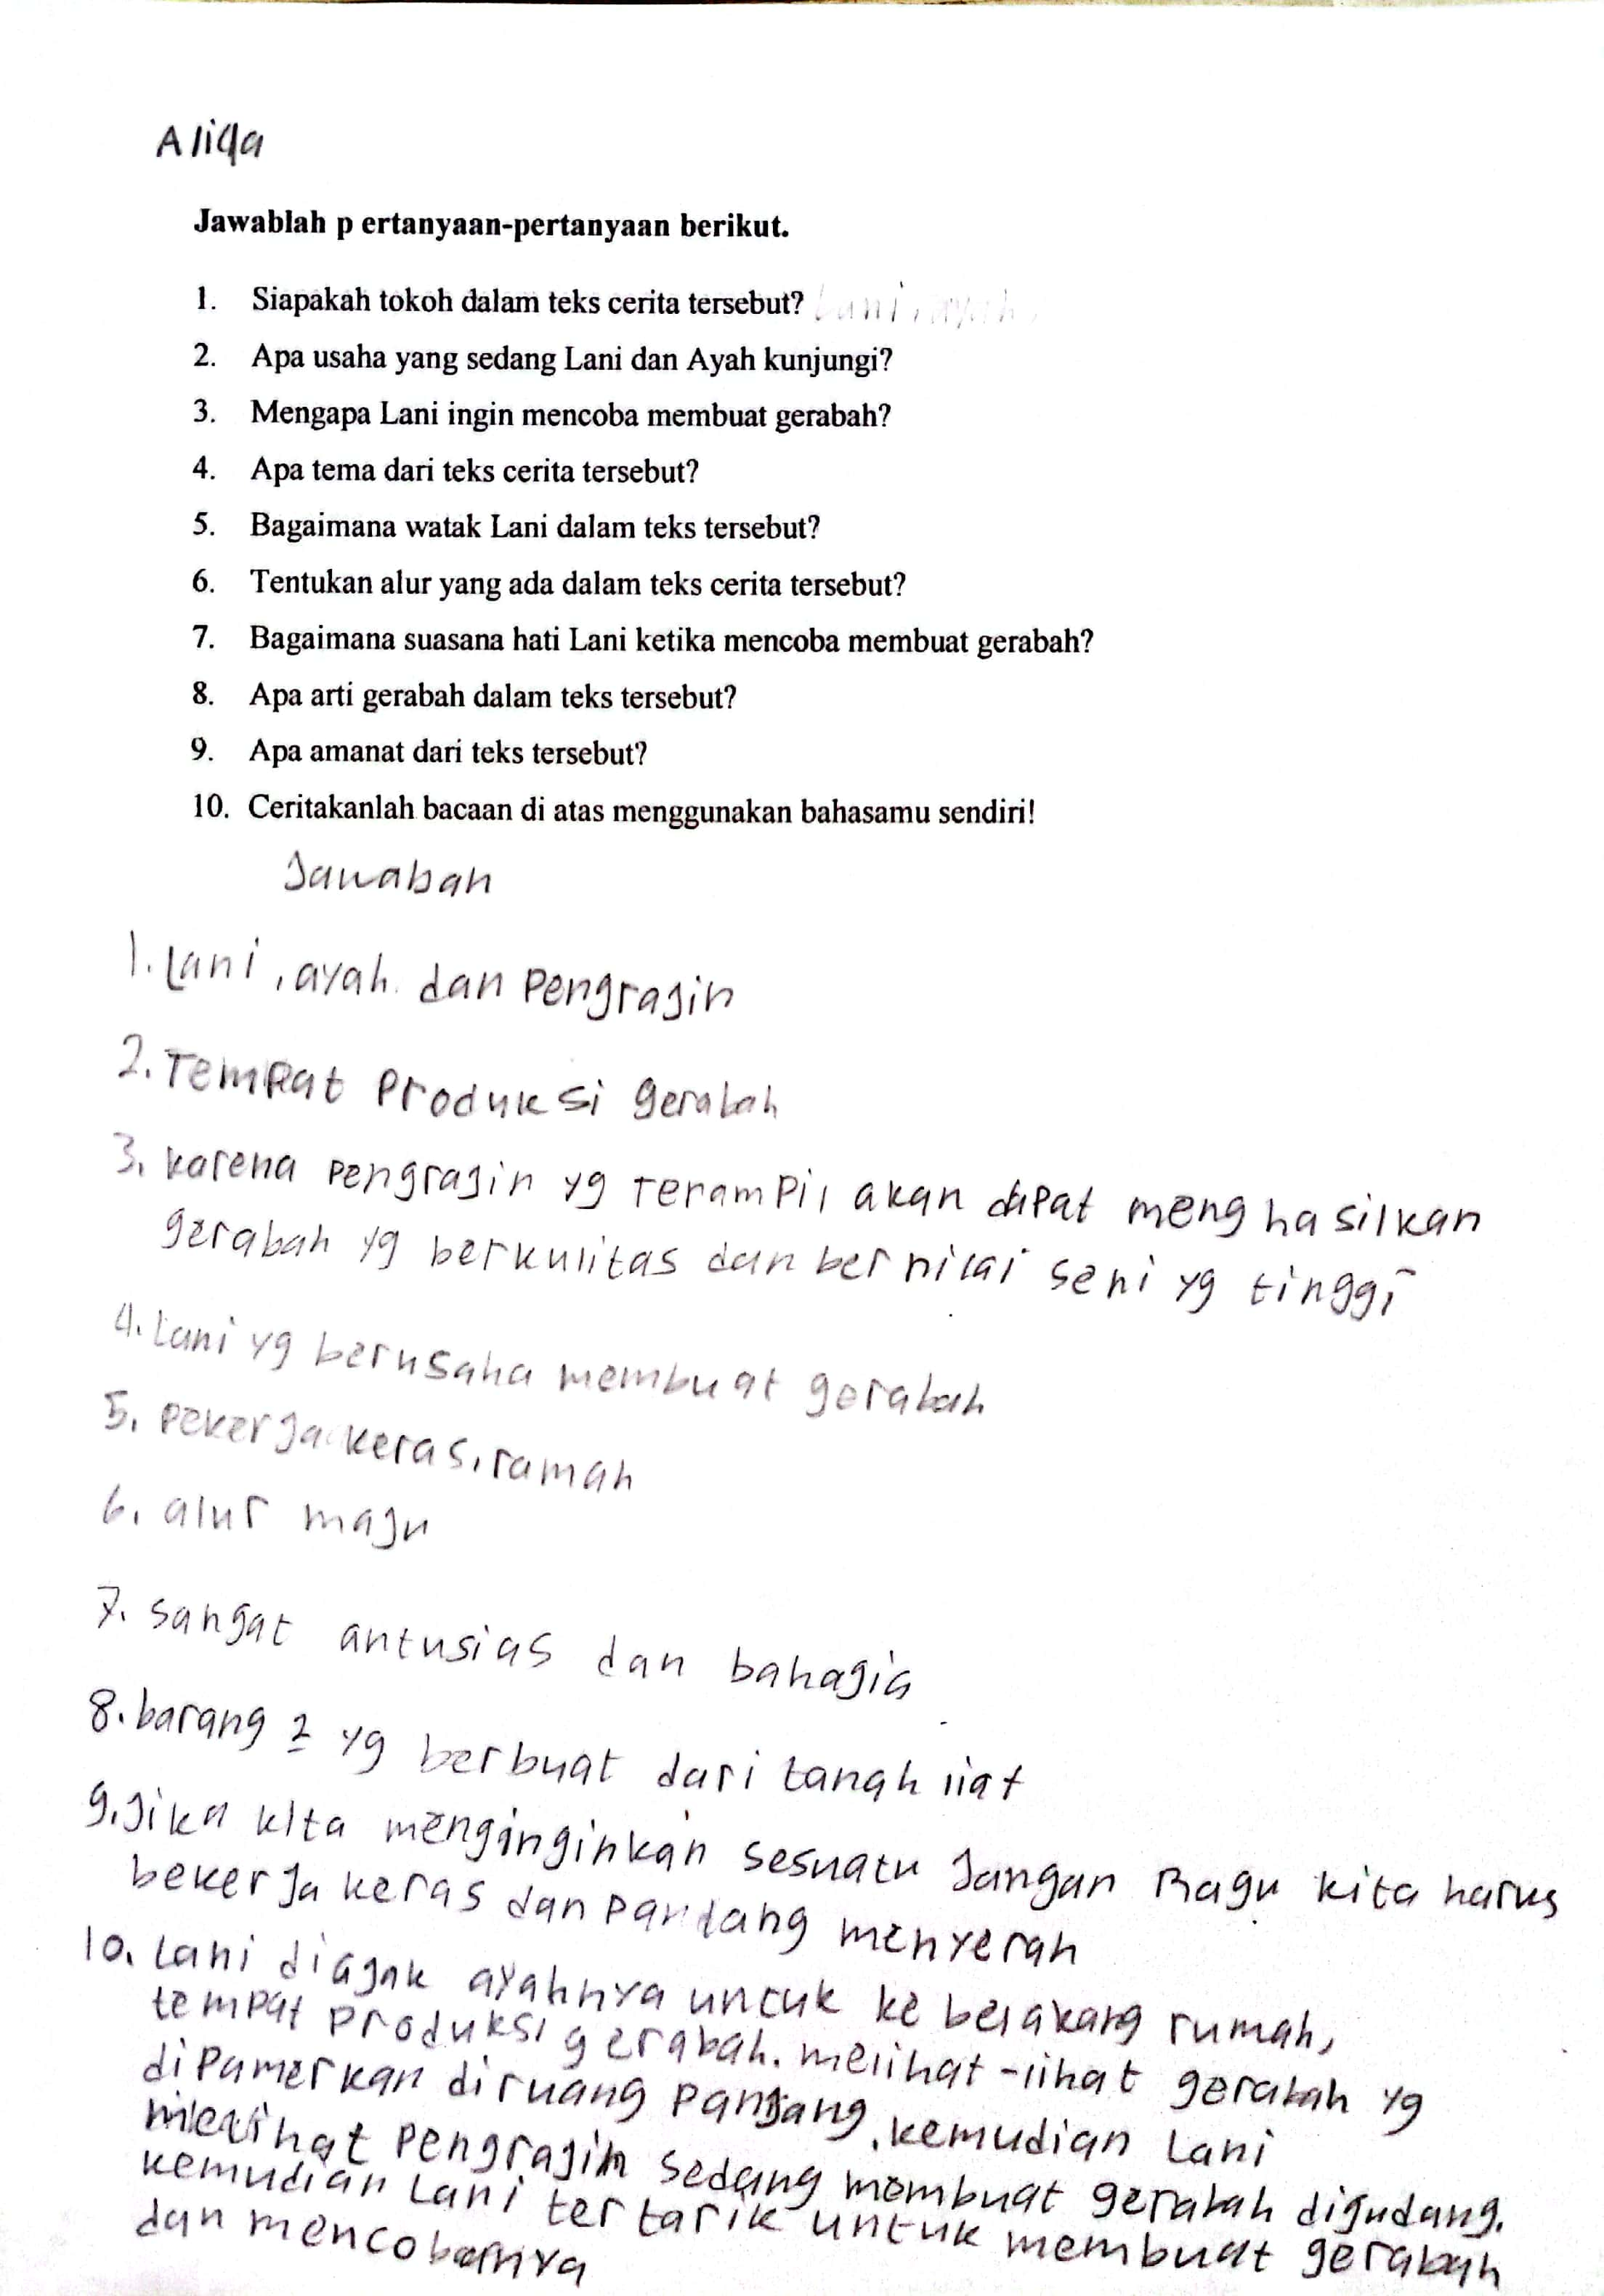 Aliqa
Jawablah p ertanyaan-pertanyaan berikut.
1. Siapakah tokoh dalam teks cerita tersebut? Lani, ayah,
2. Apa usaha yang sedang Lani dan Ayah kunjungi?
3. Mengapa Lani ingin mencoba membuat gerabah?
4. Apa tema dari teks cerita tersebut?
5. Bagaimana watak Lani dalam teks tersebut?
6. Tentukan alur yang ada dalam teks cerita tersebut?
7. Bagaimana suasana hati Lani ketika mencoba membuat gerabah?
8. Apa arti gerabah dalam teks tersebut?
9. Apa amanat dari teks tersebut?
10. Ceritakanlah bacaan di atas menggunakan bahasamu sendiri!
Jawaban
1. Lani, ayah. dan Pengrajin
2. Tempat Produksi gerabah
3. karena Pengrajin yg Terampil akan dapat menghasilkan
gerabah yg berkulitas dan bernilai seni yg tinggi
4. Lani yg berusaha membuat gerabah
5. Pekerja keras, ramah
6. alur maju
7. sangat antusias dan bahagia
8. barang 2 yg berbuat dari tanah liat
9. Jika kita menginginkan sesuatu Jangan Ragu kita harus
bekerja keras dan pantang menyerah
10. Lani diajak ayahnya untuk ke belakang rumah,
tempat Produksi gerabah. melihat-lihat gerabah yg
diPamerkan diruang Panjang, kemudian Lani
melihat Pengrajin sedang membuat gerabah digudang.
kemudian Lani tertarik untuk membuat gerabah
dan mencobanya